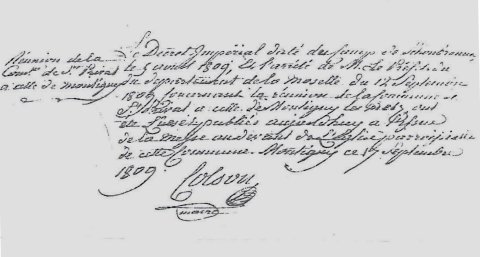 Réunion de la
Comne de St Privat
a celle de montigny
Le Décret Impérial daté du Camp de Schoenbrunn
le 5 août 1809, et l'arrêté de M. le Préfet
du département de la moselle du 12 Septembre
1809 concernant la réunion de la commune de
St Privat a celle de Montigny les Metz ont
été lus et publiés aujourdhuy a l'issue
de la messe au devant de l'Eglise paroissiale
de cette commune. Montigny ce 17 Septembre
1809.
Colson
maire